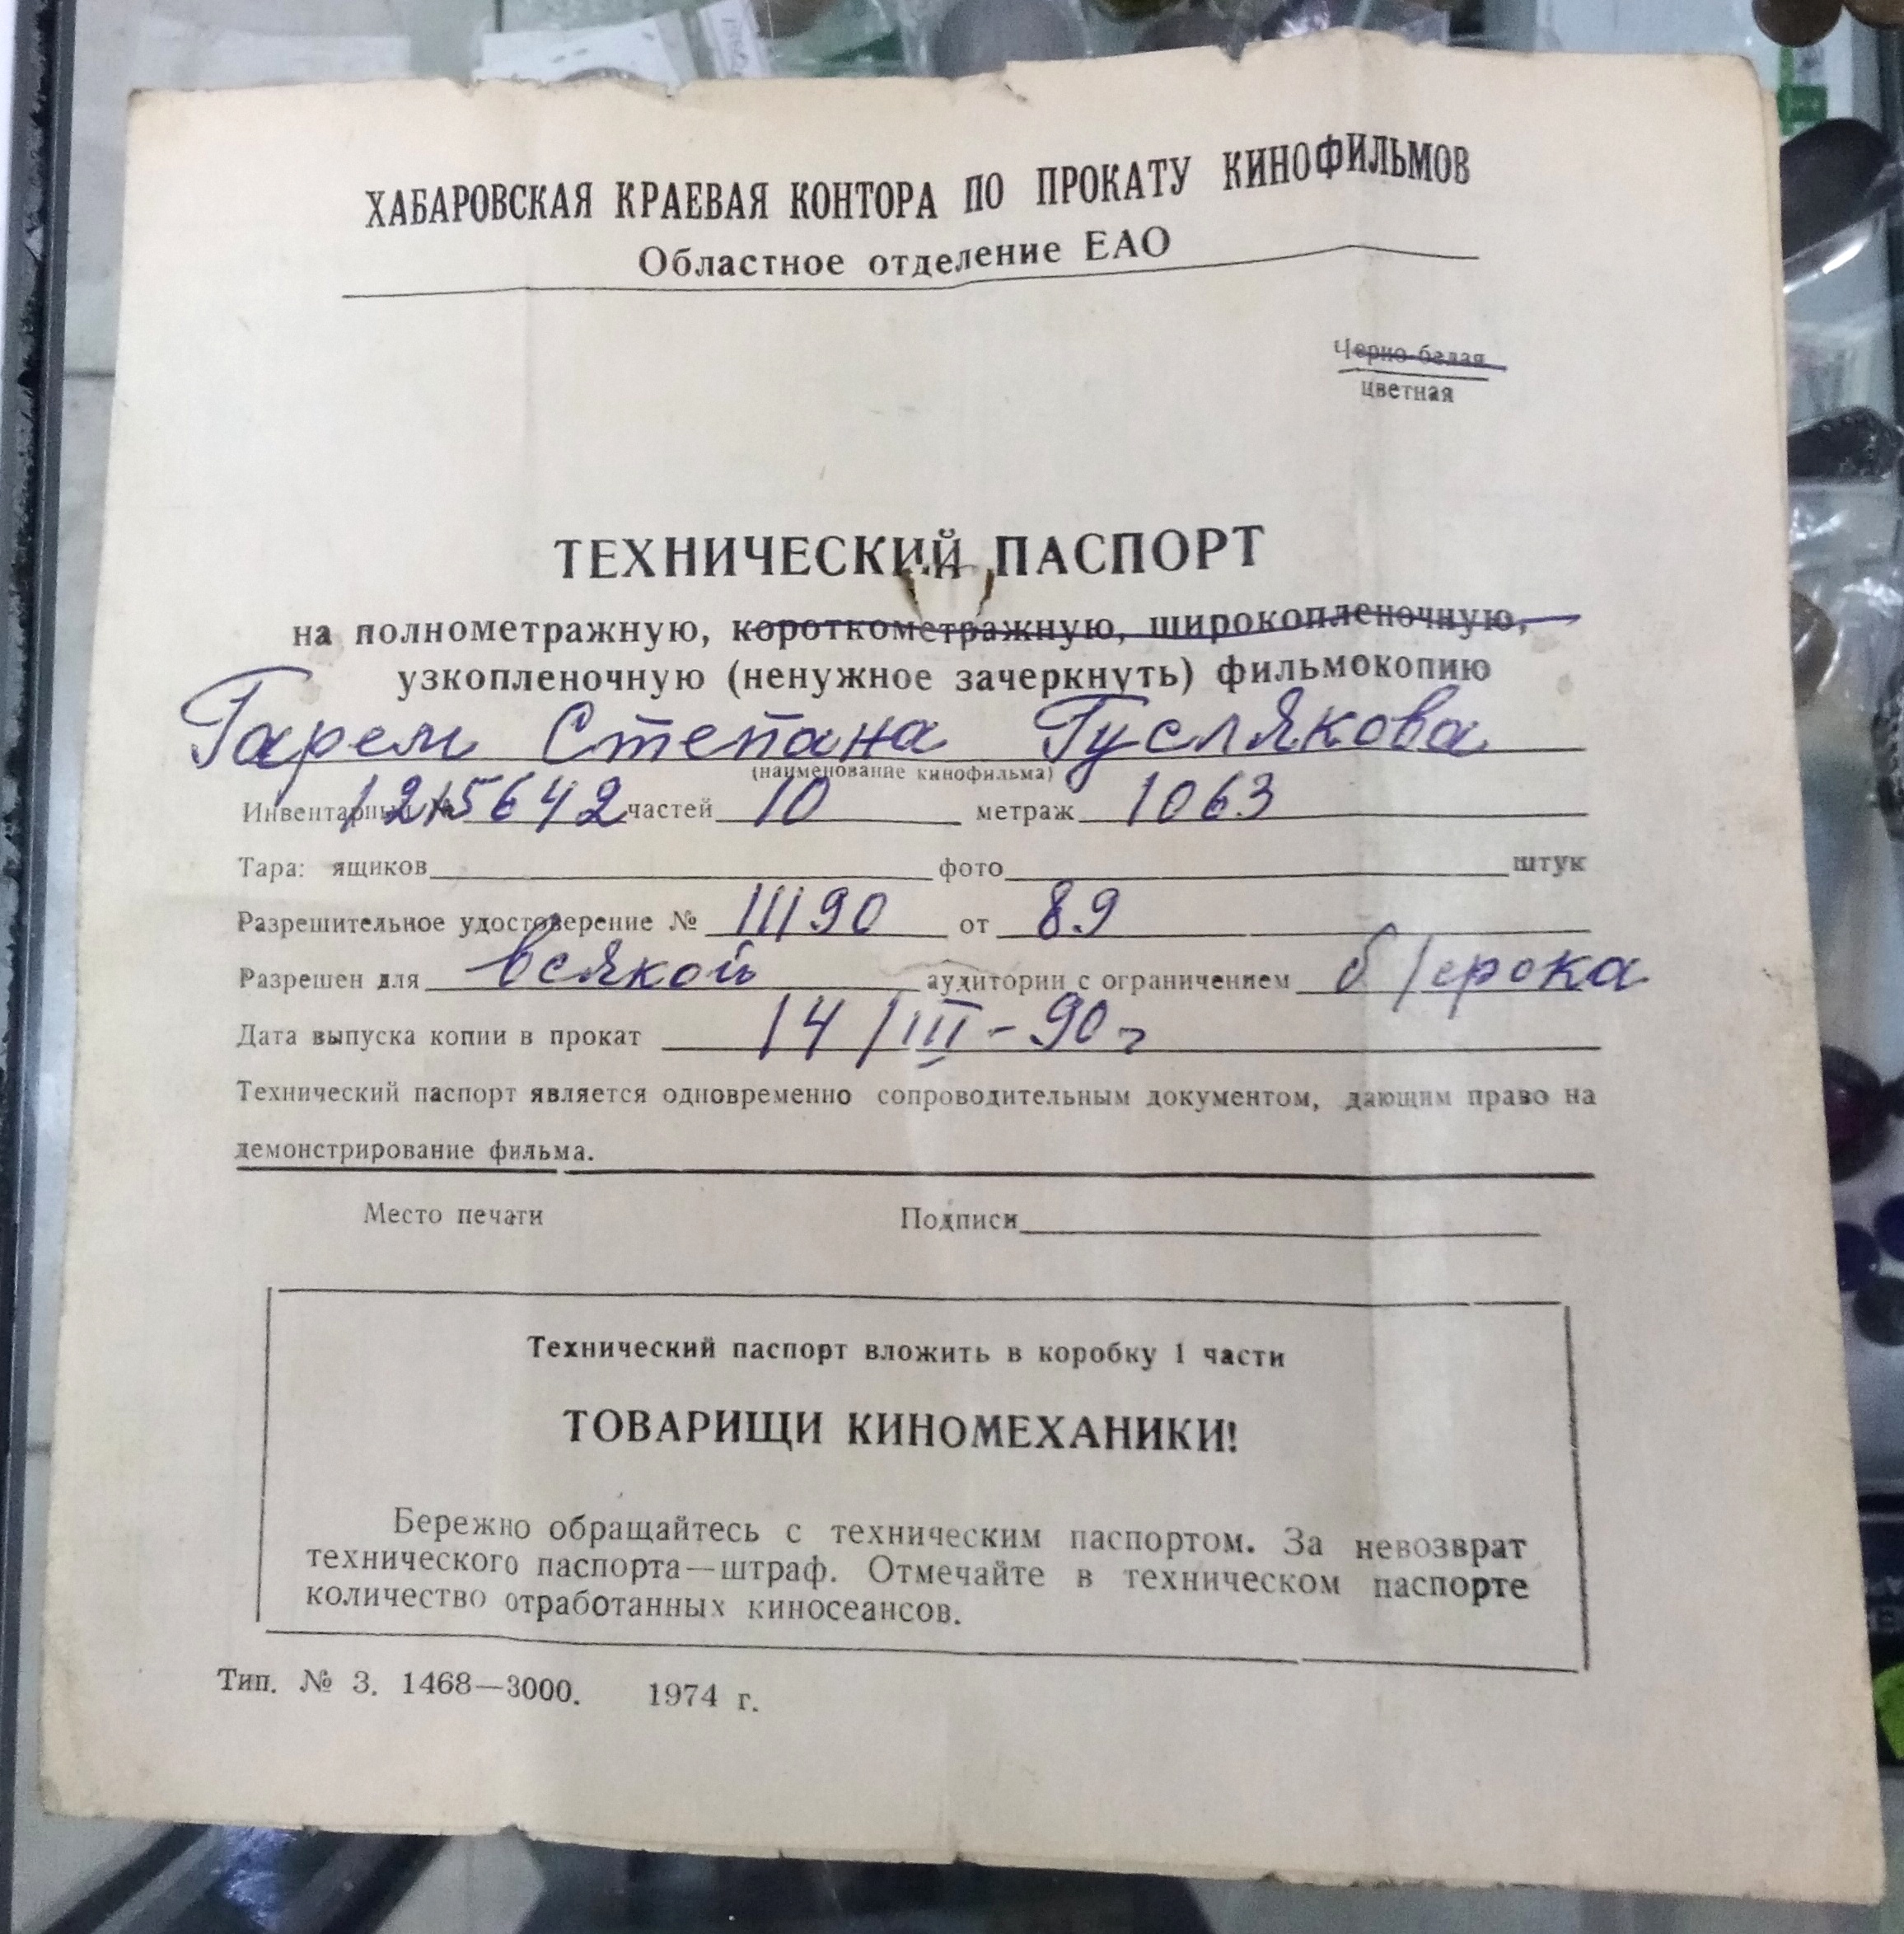 ХАБАРОВСКАЯ КРАЕВАЯ КОНТОРА ПО ПРОКАТУ КИНОФИЛЬМОВ
Областное отделение ЕАО
Черно-белая
цветная
ТЕХНИЧЕСКИЙ ПАСПОРТ
на полнометражную, короткометражную, широкопленочную,
узкопленочную (ненужное зачеркнуть) фильмокопию
Гарем Степана Гуслякова
(наименование кинофильма)
Инвентарный № 1215642 частей 10 метраж 1063
Тара: ящиков фото штук
Разрешительное удостоверение № 111190 от 89
Разрешен для всякой аудитории с ограничением б/срока
Дата выпуска копии в прокат 14/III-90 г
Технический паспорт является одновременно сопроводительным документом, дающим право на
демонстрирование фильма.
Место печати Подписи
Технический паспорт вложить в коробку 1 части
ТОВАРИЩИ КИНОМЕХАНИКИ!
Бережно обращайтесь с техническим паспортом. За невозврат
технического паспорта—штраф. Отмечайте в техническом паспорте
количество отработанных киносеансов.
Тип. № 3. 1468—3000. 1974 г.